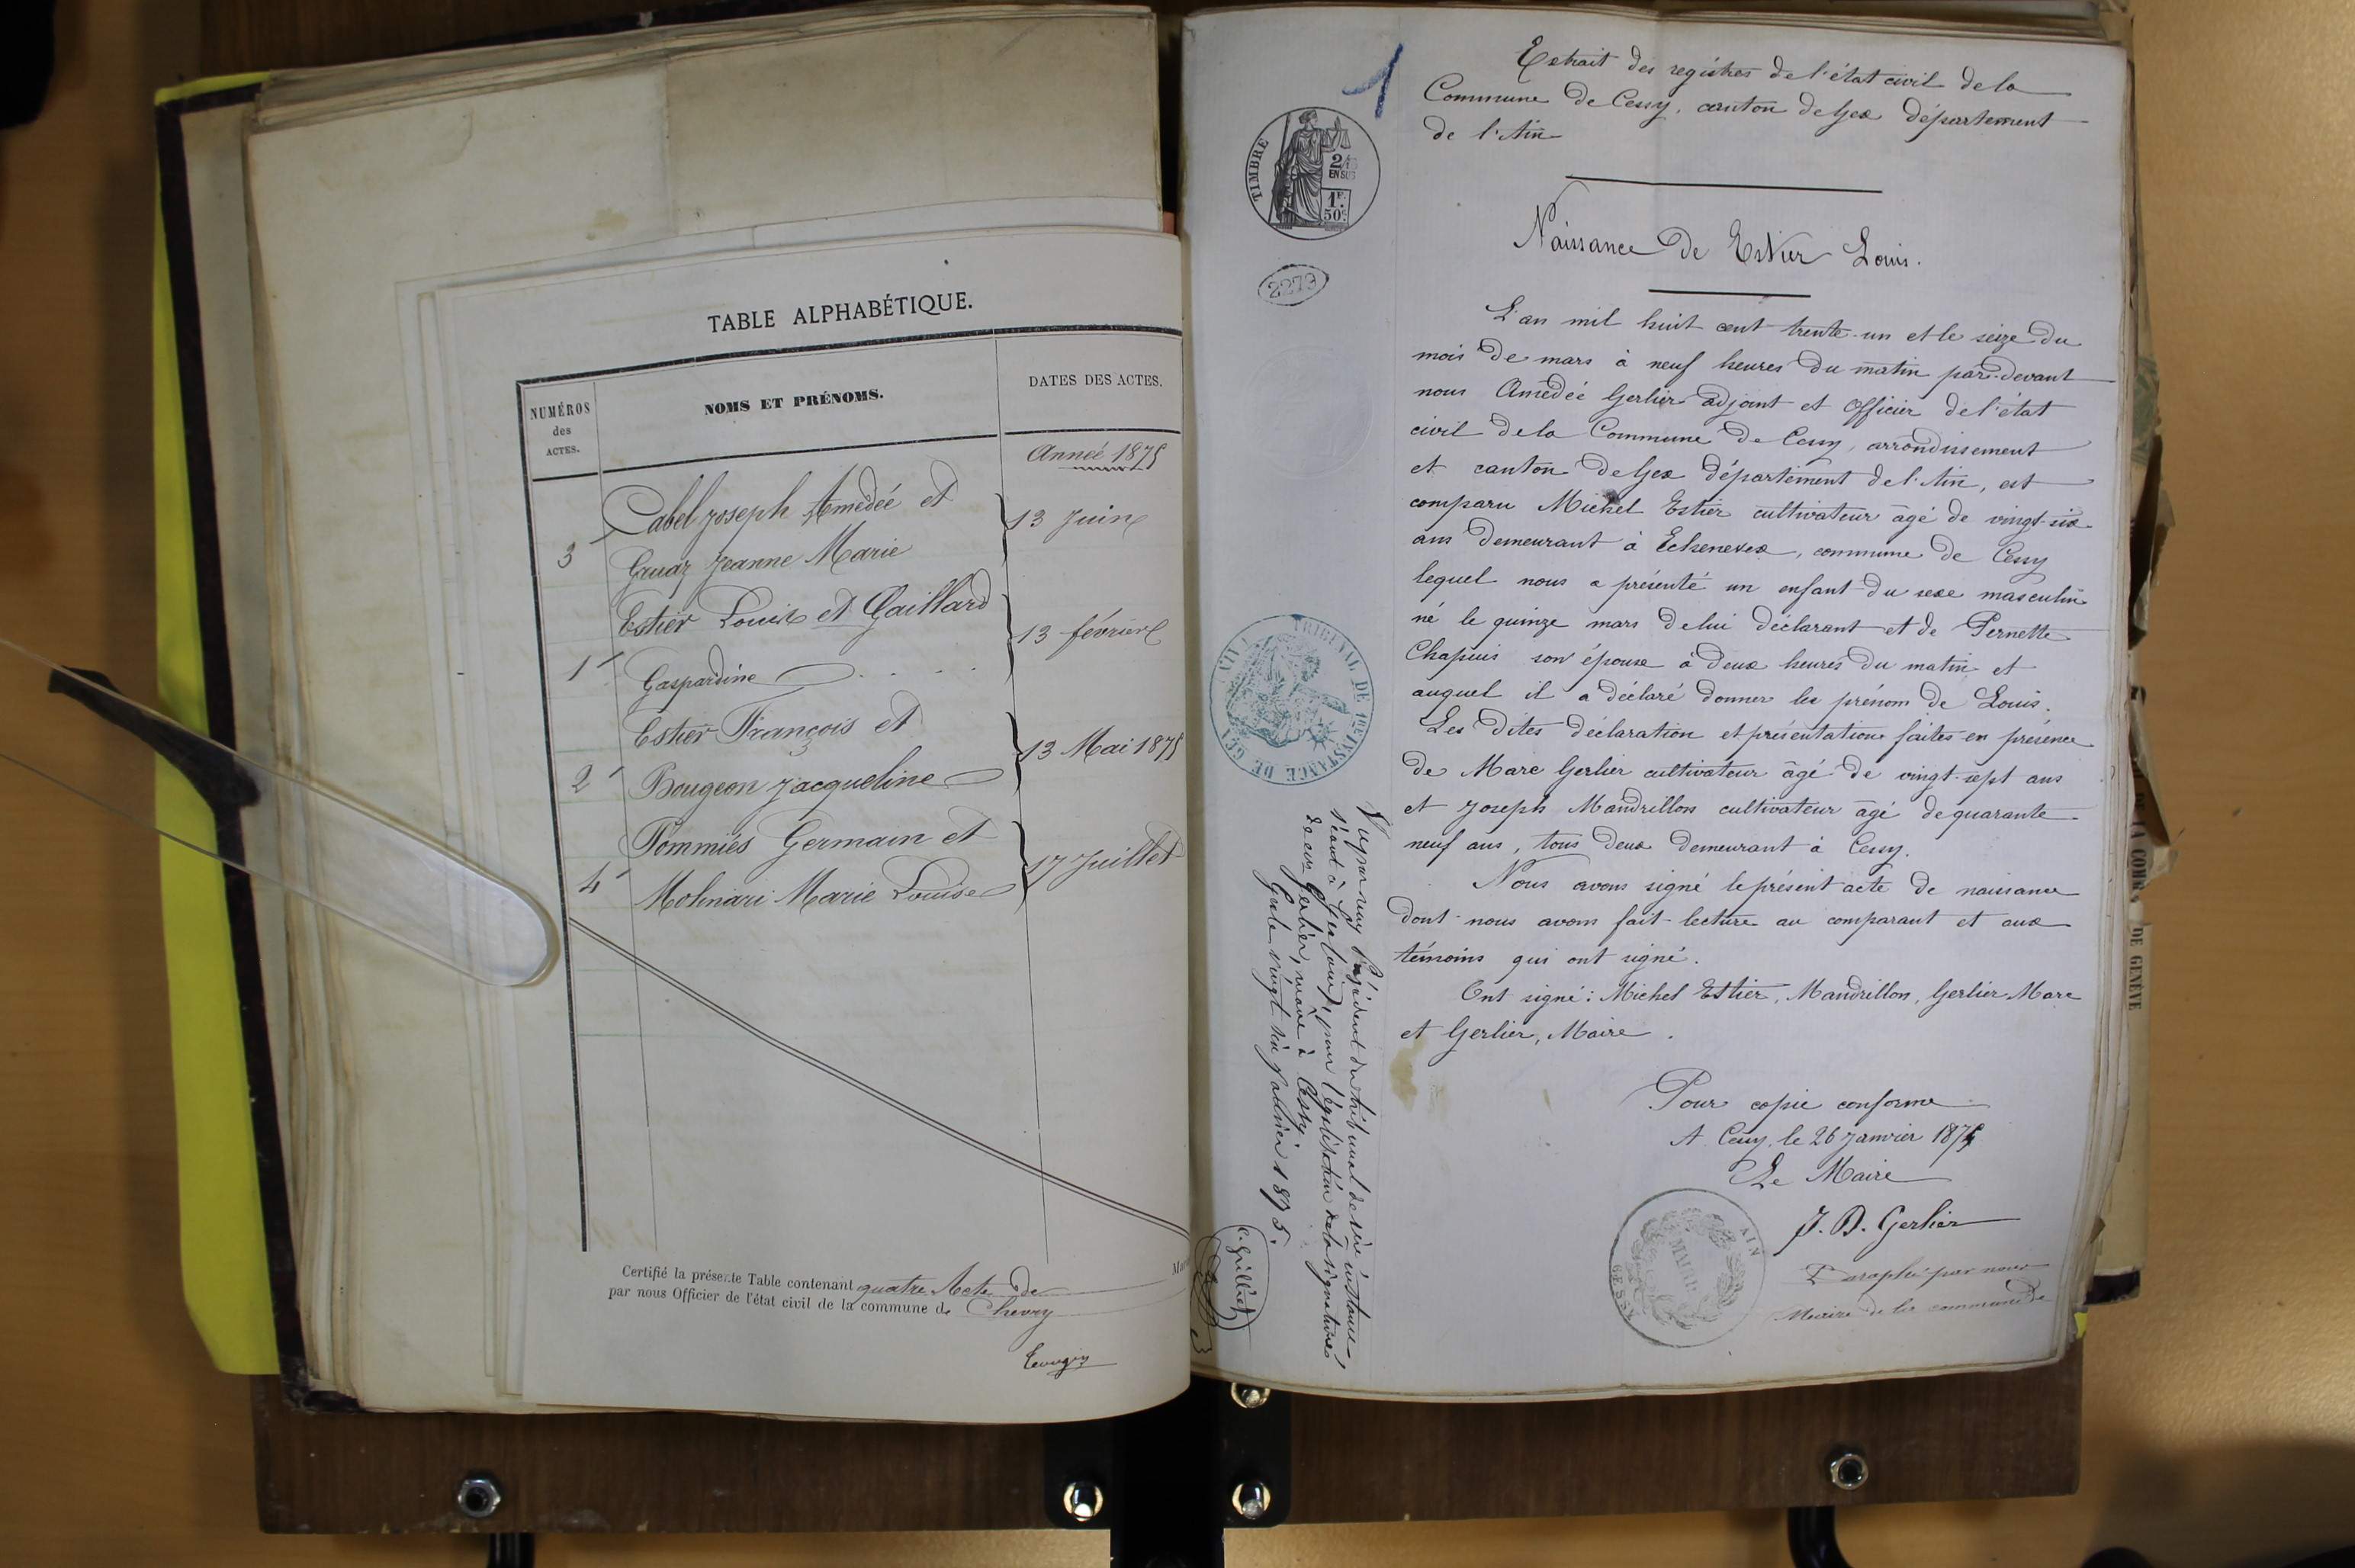 TABLE ALPHABÉTIQUE.
NUMÉROS
des
ACTES.
NOMS ET PRÉNOMS.
DATES DES ACTES.
Année 1875
Cabel Joseph Amédée et
13 Juin
3
Gruaz Jeanne Marie
Estier Louis et Gaillard
13 février
1
Gaspardine
Estier François et
13 Mai 1875
2
Bougeon Jacqueline
Pommiés Germain et
17 Juillet
4
Molinari Marie Louise
Certifié la présente Table contenant quatre Acte de Mar
par nous Officier de l'état civil de la commune de Chevry
1
TIMBRE
2/10
EN SUS
1F.
50c.
2279
TRIBUNAL DE 1re INSTANCE DE GEX (AIN)
Extrait des registres de l'état civil de la
Commune de Cessy, canton de Gex département
de l'Ain
Naissance de Estier Louis.
L'an mil huit cent trente-un et le seize du
mois de mars à neuf heures du matin par-devant
nous Amédée Gerlier adjoint et Officier de l'état
civil de la Commune de Cessy, arrondissement
et canton de Gex département de l'Ain, est
comparu Michel Estier cultivateur âgé de vingt-six
ans demeurant à Echenevex, commune de Cessy
lequel nous a présenté un enfant du sexe masculin
né le quinze mars de lui déclarant et de Pernette
Chapuis son épouse à deux heures du matin et
auquel il a déclaré donner les prénom de Louis.
Les dites déclaration et présentation faites en présence
de Marc Gerlier cultivateur âgé de vingt-sept ans
et Joseph Mandrillon cultivateur âgé de quarante
neuf ans, tous deux demeurant à Cessy.
Nous avons signé le présent acte de naissance
dont nous avons fait lecture au comparant et aux
témoins qui ont signé.
Ont signé: Michel Estier, Mandrillon, Gerlier Marc
et Gerlier, Maire.
Pour copie conforme
A Cessy, le 26 Janvier 1875
Le Maire
J. D. Gerlier
Paraphé par nous
Maire de la commune de
AIN
CESSY
Vu par nous Président du tribunal de 1ère instance
séant à Gex (ain), pour légalisation de la signature
de Mr Gerlier, maire à Cessy
Gex le vingt six janvier 1875.
DE LA COUR DE GENÈVE